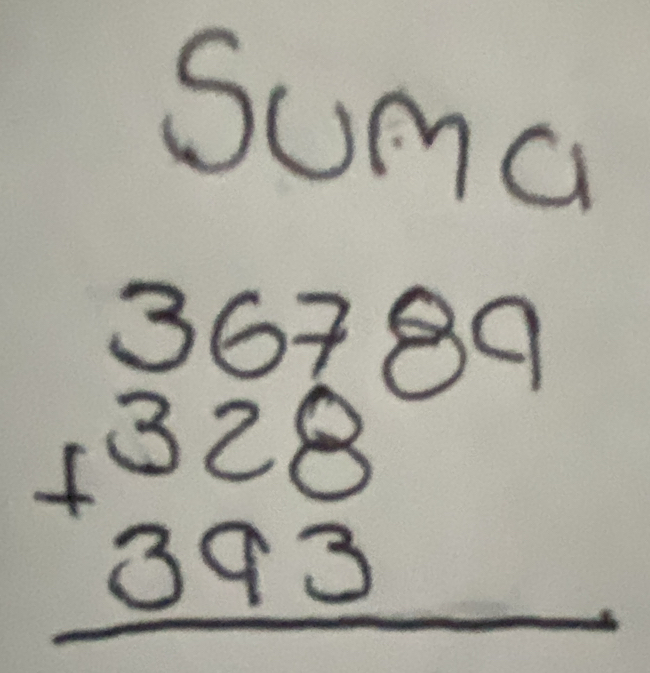 Suma
36789
328
+
393